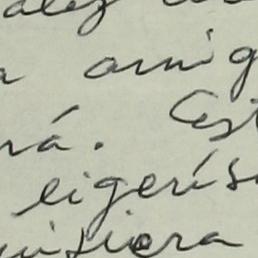 alez
a amig
rá. Est
ligerís
uisiera